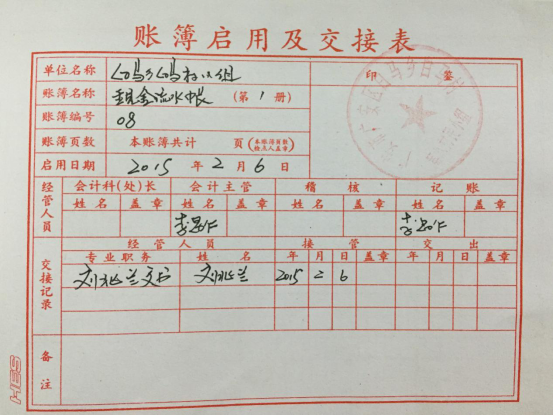 账簿启用及交接表
单位名称 印 鉴
账簿名称 现金流水帐 (第 1 册)
账簿编号 08
账簿页数 本账簿共计 页 (本账簿页数 检点人盖章)
启用日期 2015 年 2 月 6 日
经管人员 会计科(处)长 会计主管 稽核 记账
姓名 盖章 姓名 盖章 姓名 盖章 姓名 盖章
交接记录 经管人员 接管 交出
专业职务 姓名 年 月 日 盖章 年 月 日 盖章
2015 2 6
备注